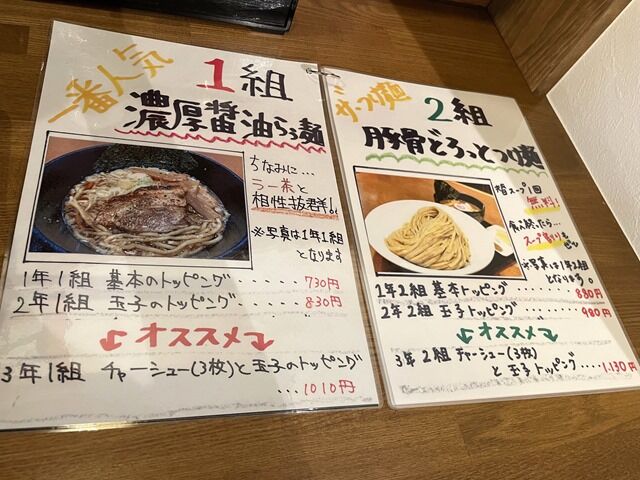 一番人気
1組
濃厚醤油らぅ麺
ちなみに...
ラー茶と
相性抜群!!
※写真は1年1組
となります
1年1組 基本のトッピング......730円
2年1組 玉子のトッピング......830円
オススメ
3年1組 チャーシュー(3枚)と玉子のトッピング
...1010円
2組
豚骨どろっとつけ麺
無料!
食べ終えたら...
スープ割りも
※写真は1年2組
となります。
1年2組 基本トッピング......880円
2年2組 玉子トッピング......980円
オススメ
3年2組 チャーシュー(3枚)
と玉子トッピング....1,130円